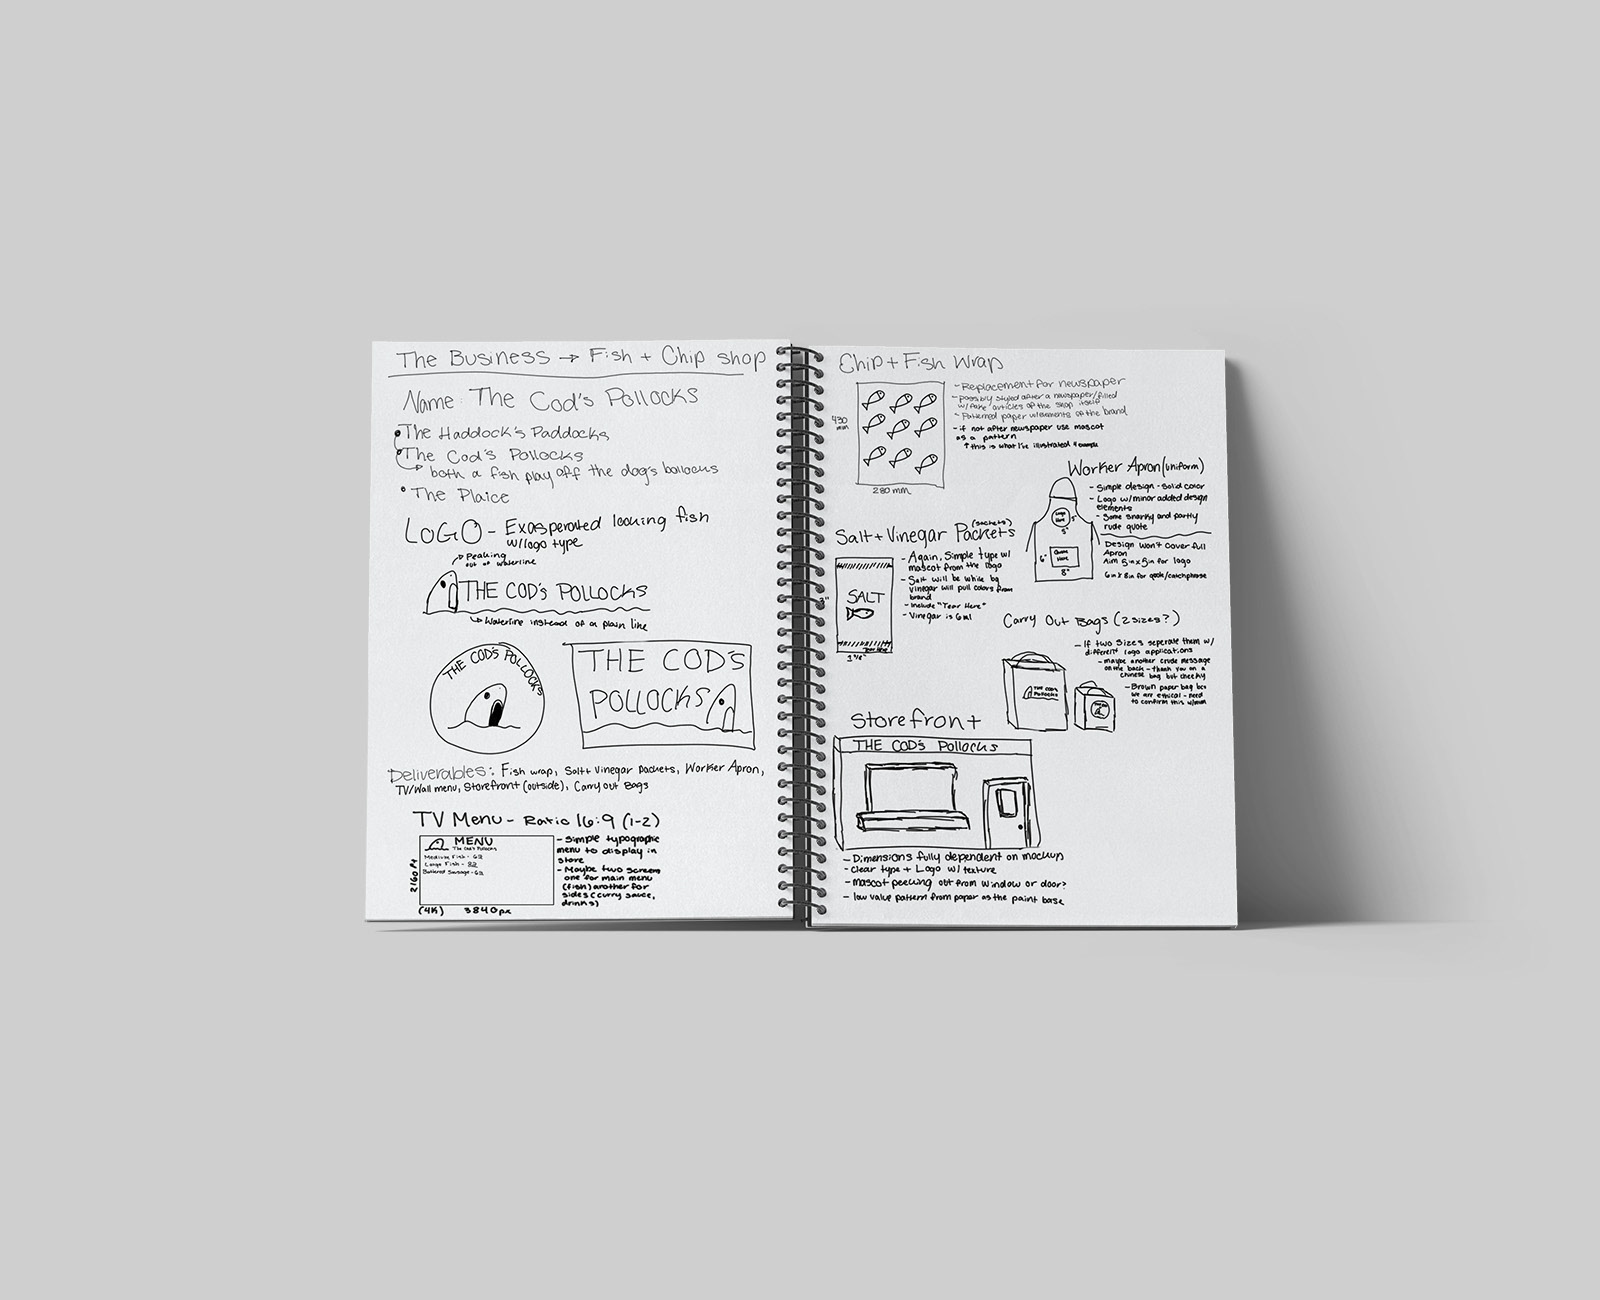 The Business → Fish + Chip shop
Name: The Cod's Pollocks
• The Haddock's Paddocks
• The Cod's Pollocks
↳ both a fish play off the dog's bollocks
• The Plaice
LOGO - Exasperated looking fish
w/logo type
Peaking
out of waterline
THE COD'S POLLOCKS
↳ Waterline instead of a plain line
THE COD'S POLLOCKS
THE COD'S
POLLOCKS
Deliverables: Fish wrap, Salt + Vinegar Packets, Worker Apron,
TV/Wall menu, Storefront (outside), Carry out Bags
TV Menu - Ratio 16:9 (1-2)
MENU
The Cod's Pollocks
Medium Fish - 6
Large Fish - 8
Battered Sausage - 6
2160 px
(4K) 3840 px
- Simple typographic
menu to display in
store
- Maybe two screens
one for main menu
(fish) another for
sides (curry sauce,
drinks)
Chip + Fish Wrap
430
mm
280 mm
- Replacement for newspaper
- possibly styled after a newspaper/filled
w/fake articles of the shop itself
- Patterned paper w/elements of the brand
- if not after newspaper use mascot
as a pattern
↑ this is what I've illustrated 4 example
Worker Apron (uniform)
Logo
Here
5"
5"
Quote
Here
6"
8"
- Simple design - Solid color
- Logo w/minor added design
elements
- Some snarky and partly
rude quote
Design won't cover full
Apron
Aim 5in x 5in for logo
6in x 8in for quote/catchphrase
Salt + Vinegar Packets
(sachets)
SALT
Tear Here
3"
1 3/4"
- Again, Simple type w/
mascot from the logo
- Salt will be white bg
vinegar will pull colors from
brand
- Include "Tear Here"
- Vinegar is 6ml
Carry Out Bags (2 sizes?)
THE COD'S
POLLOCKS
- If two sizes seperate them w/
different logo applications
- maybe another crude message
on the back - thank you on a
chinese bag but cheeky
- Brown paper bag bcs
we are ethical - need
to confirm this w/
Storefront
THE COD'S Pollocks
- Dimensions fully dependent on mockup
- clear type + Logo w/ texture
- mascot peeking out from window or door?
- low value pattern from paper as the paint base